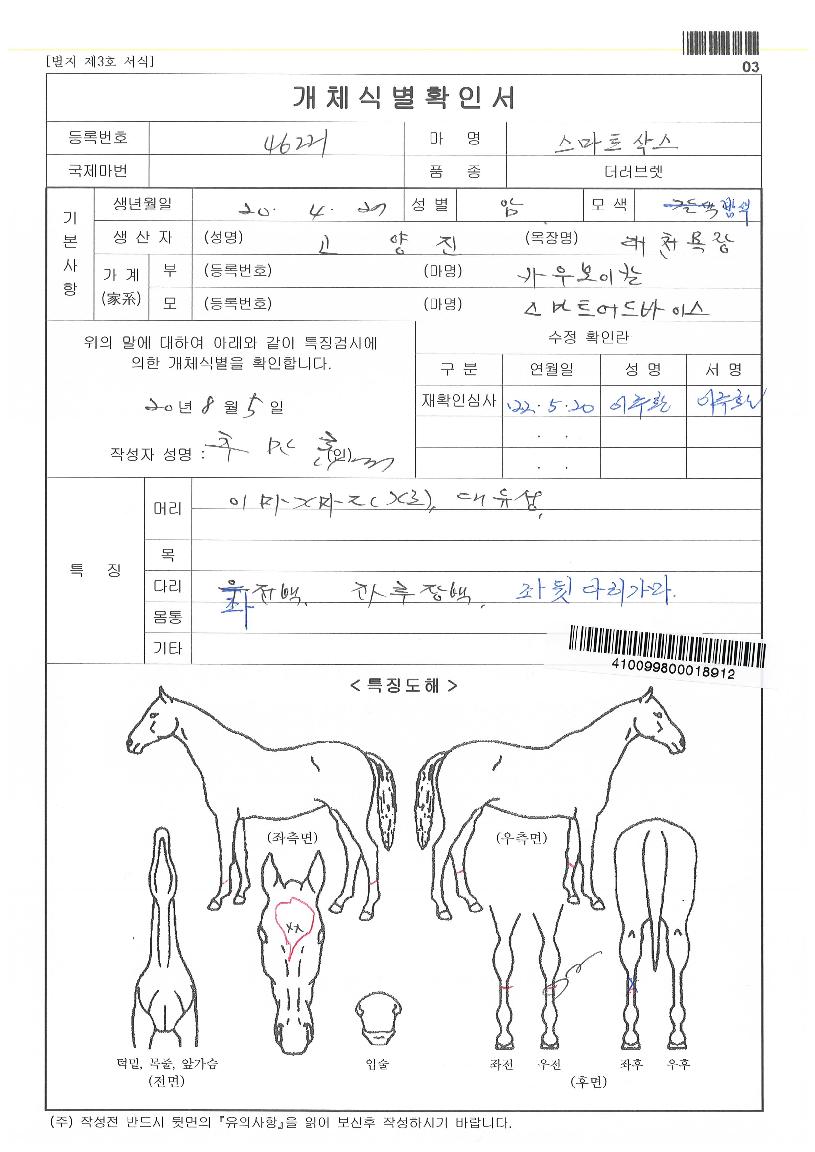 [별지 제3호 서식]
03
개체식별확인서
등록번호 마 명 스마트삭스
국제마번 품 종 더러브렛
기본사항
생년월일 20. 4. 27 성별 암 모색 밤색
생산자 (성명) 고 양 진 (목장명) 대천목장
가계 (家系) 부 (등록번호) (마명) 카우보이칼
모 (등록번호) (마명) 스마트어드바이스
위의 말에 대하여 아래와 같이 특징검시에
의한 개체식별을 확인합니다.
20년 8월 5일
작성자 성명 : (인)
수정 확인란
구 분 연월일 성 명 서 명
재확인심사 22. 5. 20 이주환 이주환
. .
. .
특 징
머리
목
다리 좌전백, 좌후장백, 좌뒷다리가마.
몸통
기타
410099800018912
< 특징도해 >
(좌측면) (우측면)
턱밑, 목줄, 앞가슴
(전면)
입술
좌전 우전 좌후 우후
(후면)
(주) 작성전 반드시 뒷면의 『유의사항』을 읽어 보신후 작성하시기 바랍니다.